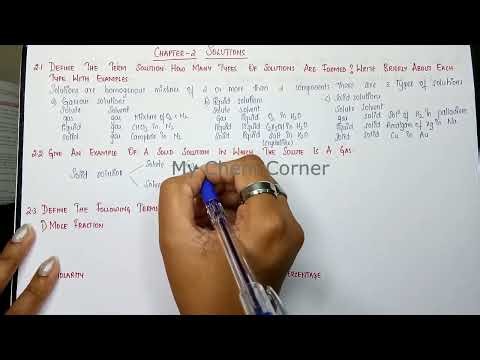 CHAPTER-2 SOLUTIONS
2.1 DEFINE THE TERM SOLUTION. HOW MANY TYPES OF SOLUTIONS ARE FORMED? WRITE BRIEFLY ABOUT EACH
TYPE WITH EXAMPLES.
Solutions are homogenous mixture of 2 or more than 2 components. There are 3 types of solutions
a) Gaseous solutions b) liquid solutions c) Solid solutions
Solute Solvent Solute Solvent Solute Solvent
gas gas Mixture of O2 & N2 gas liquid O2 in H2O gas solid H2 in palladium
liquid gas CHCl3 in N2 liquid liquid in H2O liquid solid Amalgam of Hg in Na
solid gas Camphor in N2 solid liquid in H2O solid solid Cu in Au
2.2 GIVE AN EXAMPLE OF A SOLID SOLUTION IN WHICH THE SOLUTE IS A GAS.
Solute
Solid solution
My Chem Corner
2.3 DEFINE THE FOLLOWING TERMS
1) MOLE FRACTION